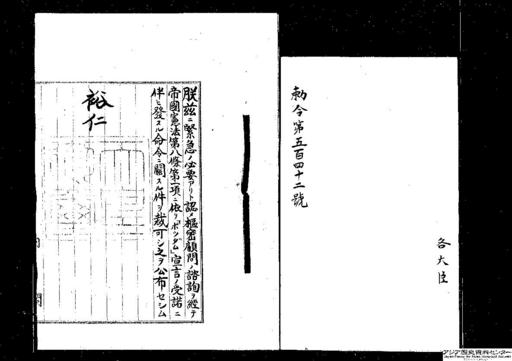 勅令第五百四十二號
各大臣
朕茲ニ緊急ノ必要アリト認メ樞密顧問ノ諮詢ヲ經テ
帝國憲法第八條第一項ニ依リ「ポツダム」宣言ノ受諾ニ
伴ヒ發スル命令ニ關スル件ヲ裁可シ之ヲ公布セシム
裕仁
アジア歴史資料センター